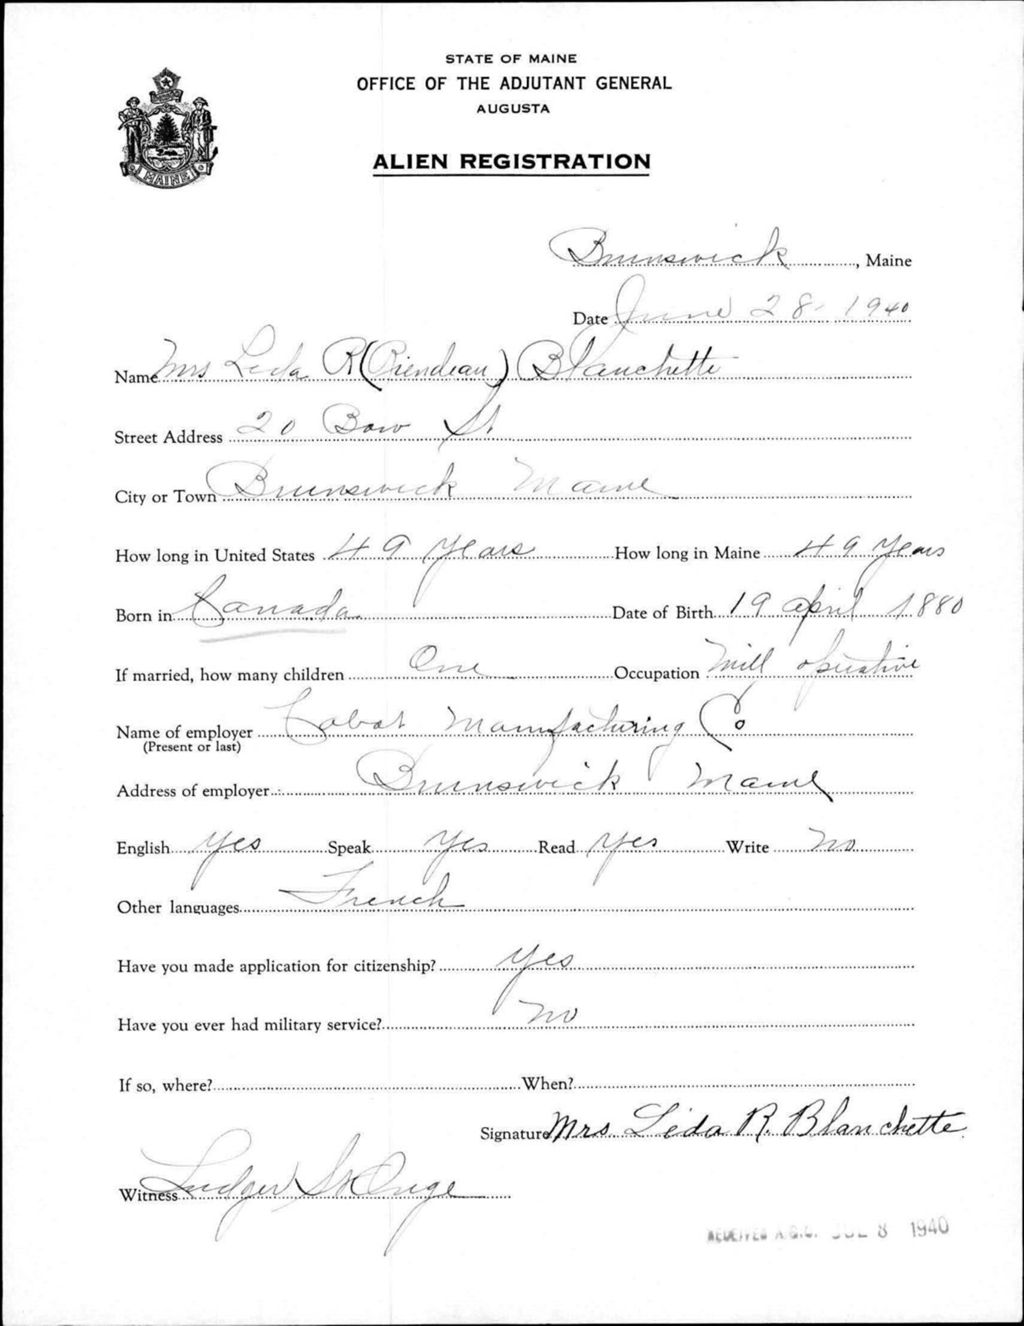 STATE OF MAINE
OFFICE OF THE ADJUTANT GENERAL
AUGUSTA
ALIEN REGISTRATION
MAINE
Brunswick, Maine
Date June 28- 1940
Name Mrs Leda R (Riendeau) Blanchette
Street Address 20 Bow St
City or Town Brunswick Maine
How long in United States 49 years How long in Maine 49 years
Born in Canada Date of Birth 19 April 1880
If married, how many children One Occupation Mill operative
Name of employer Cabot Manufacturing Co
(Present or last)
Address of employer Brunswick Maine
English Yes Speak Yes Read Yes Write No
Other languages French
Have you made application for citizenship? Yes
Have you ever had military service? No
If so, where? When?
Signature Mrs. Leda R. Blanchette
Witness Ludger St Onge
RECEIVED A.G.O. JUL 8 1940